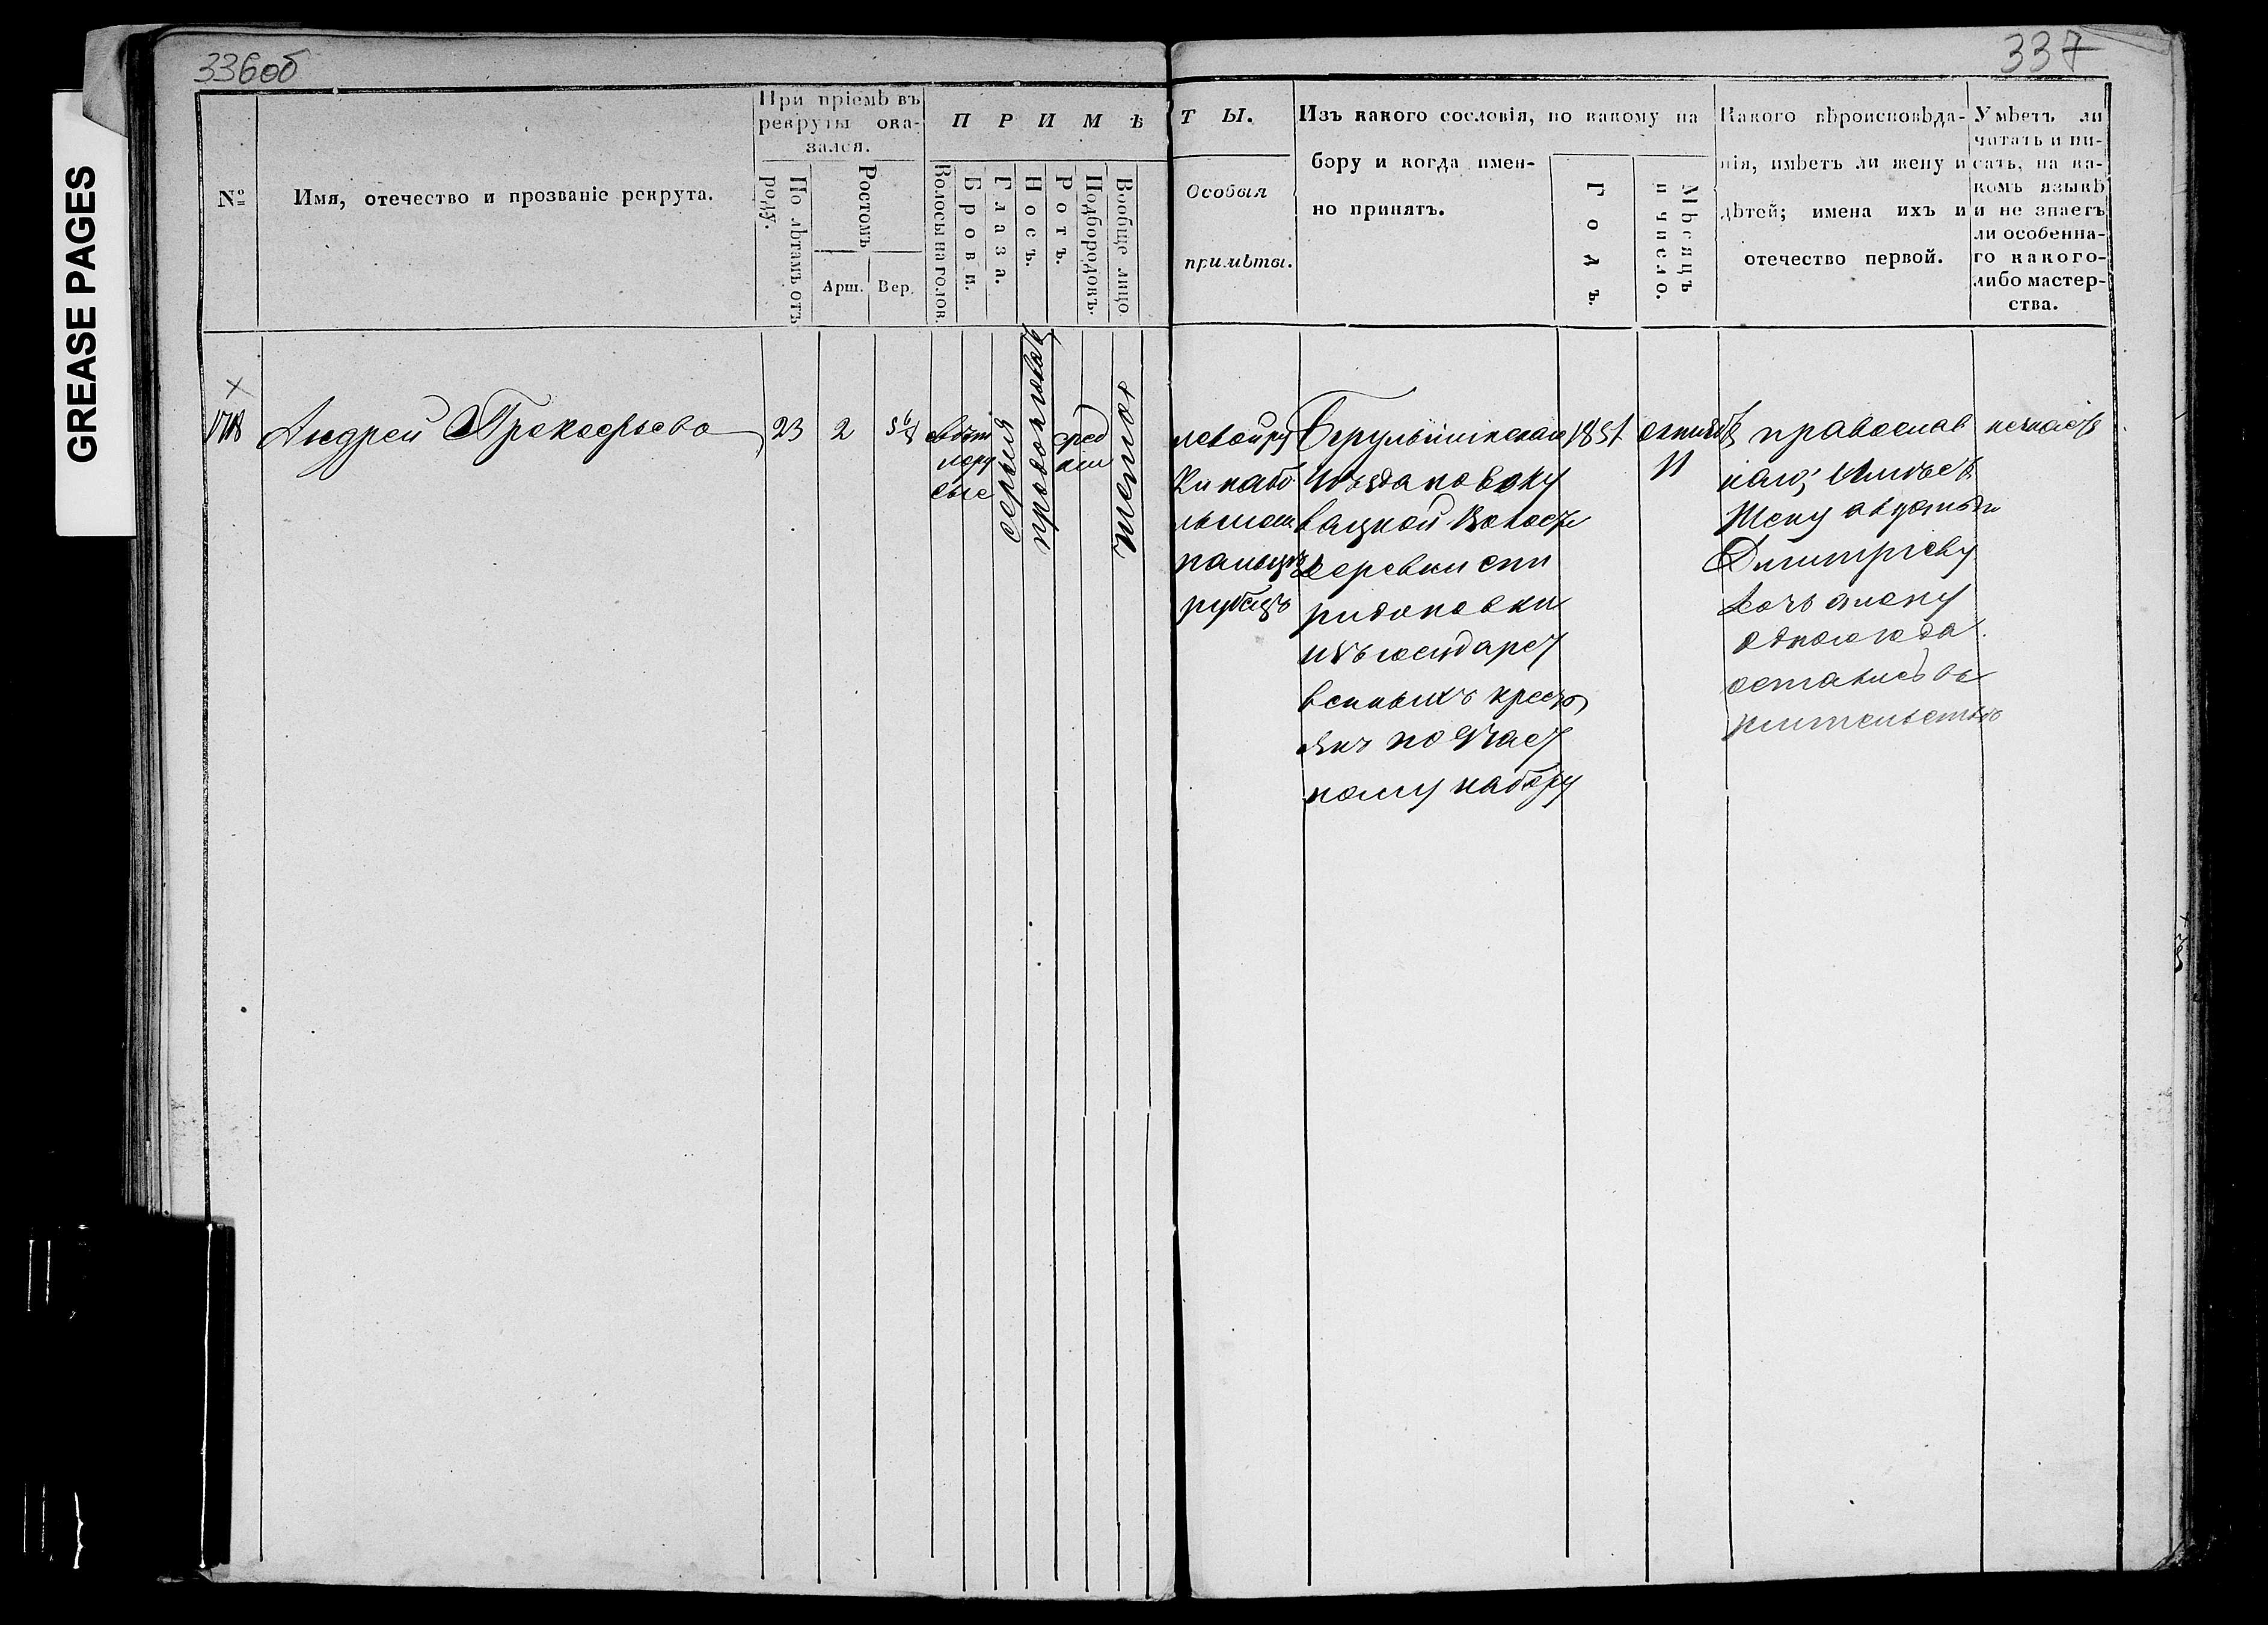 GREASE PAGES
336об
337
№
Имя, отечество и прозваніе рекрута.
При пріемѣ въ
рекруты ока-
зался.
По лѣтамъ отъ
роду.
Ростомъ
Арш.
Вер.
ПРИМѢ
Волосы на голов.
Брови.
Глаза.
Носъ.
Ротъ.
Подбородокъ.
Вообще лицо
ТЫ.
Особыя
примѣты.
Изъ какого сословія, по какому на
бору и когда имен-
но принятъ.
Годъ.
Мѣсяцъ
и число.
Какого вѣроисповѣда-
нія, имѣетъ ли жену и
дѣтей; имена ихъ и
отечество первой.
Умѣетъ ли
читать и пи-
сать, на ка-
комъ языкѣ
и не знаетъ
ли особенна-
го какого-
либо мастер-
ства.
Андрей Прокофьевъ
23
2
свѣт
лору
сые
серыя
сред
ніи
левой ру
ки на бо
льшом
пальцѣ
рубецъ
уѣзда
волости
деревни спи
ридоновки
изъ государст
венныхъ кресть
янъ по част
ному набору
1851
октяб
11
православ
наго; имѣетъ
жену авдотью
Дмитріеву
дочь
одного года
остались въ
жительствѣ